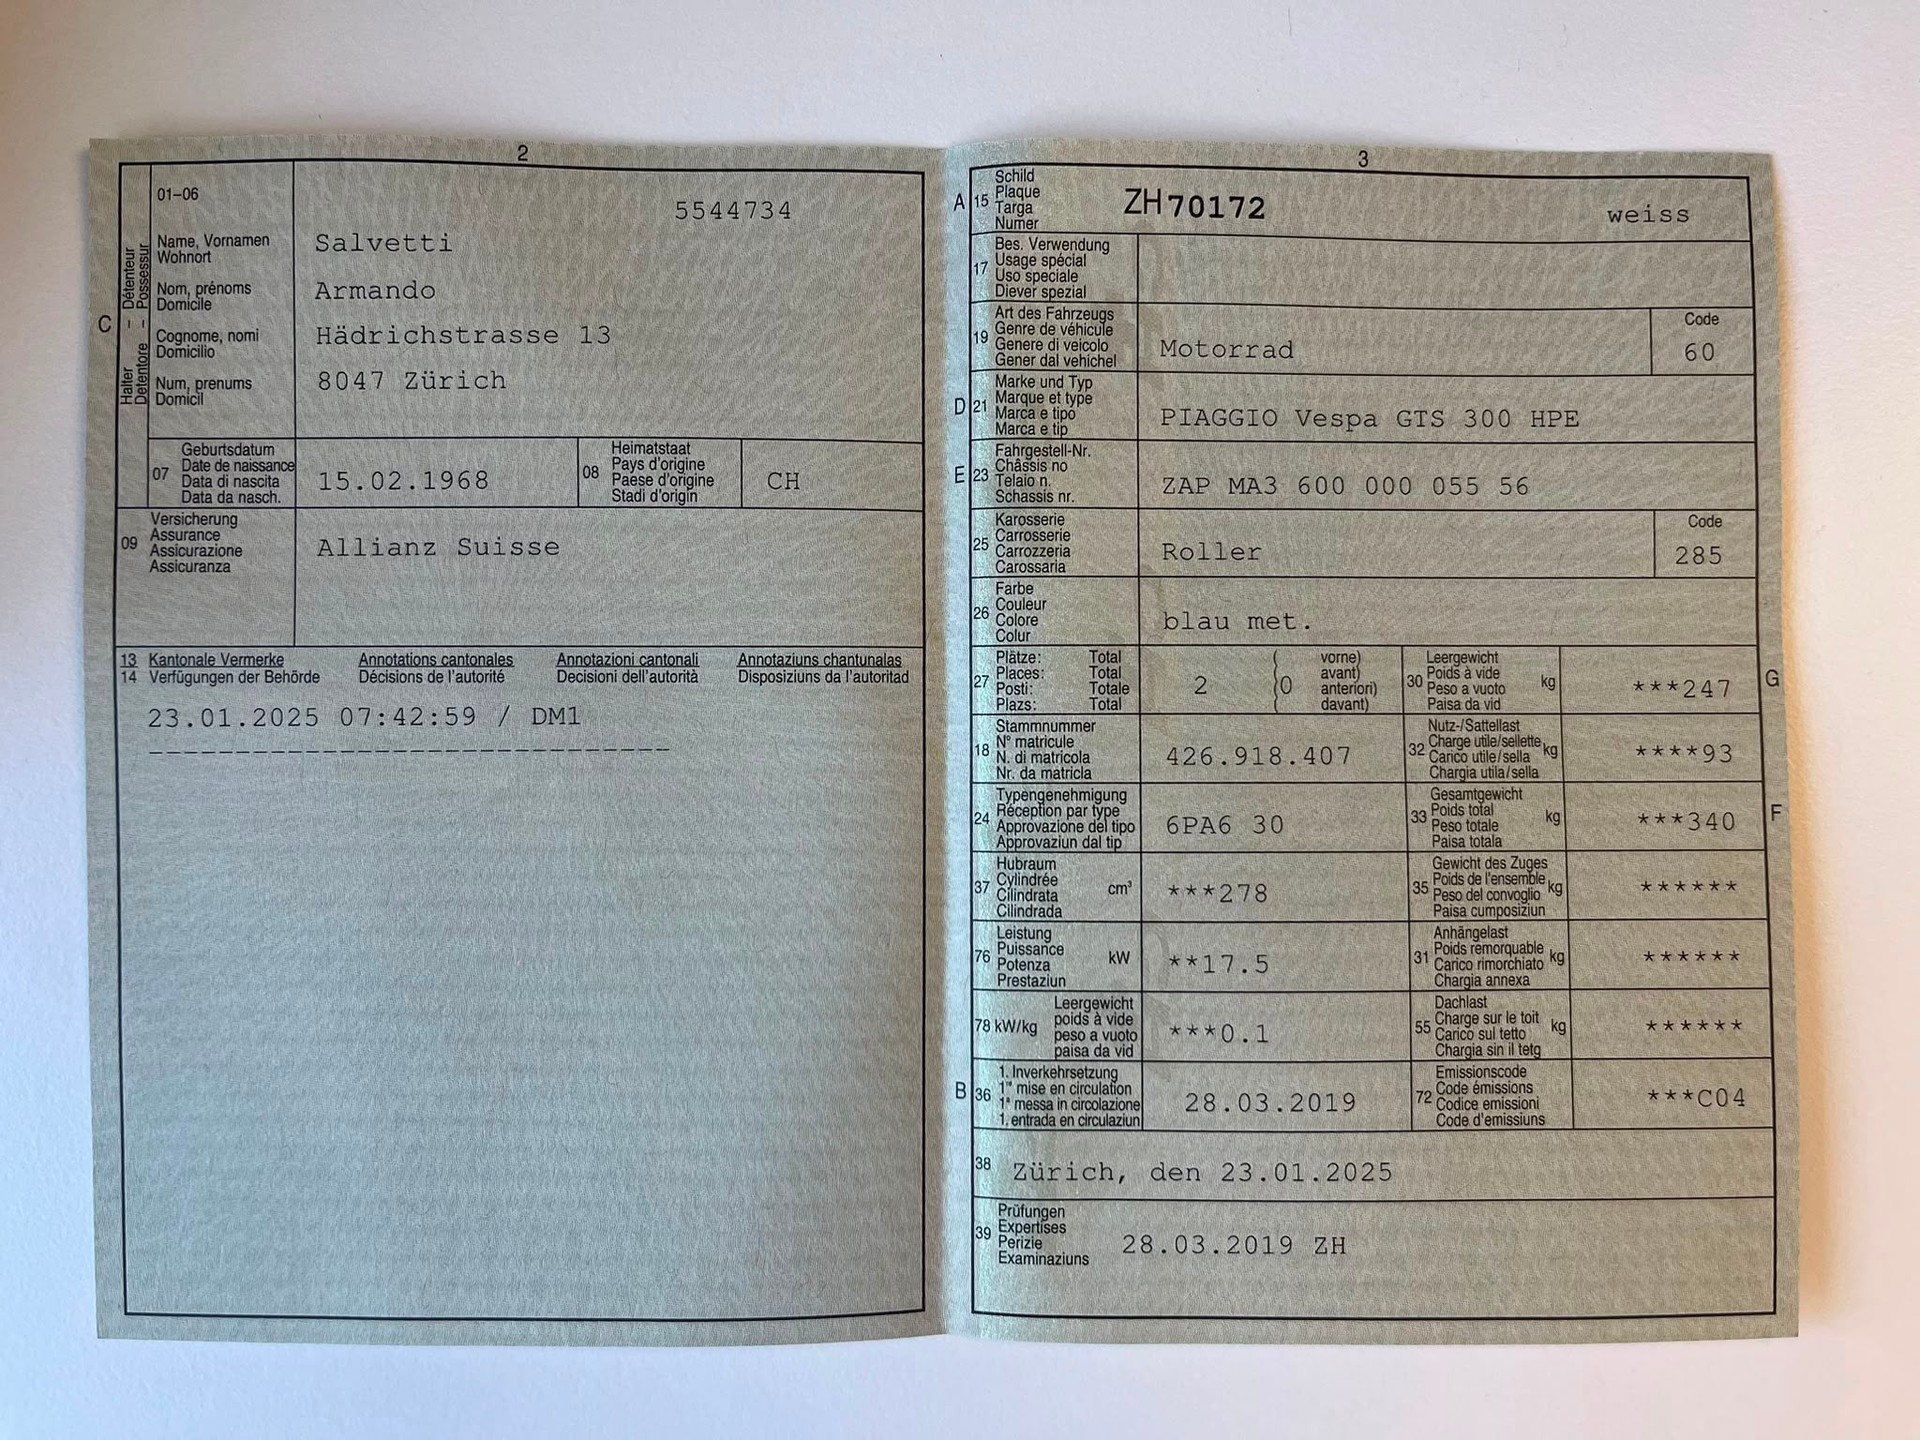 2
01–06
5544734
C
Halter – Détenteur
Detentore – Possessur
Name, Vornamen
Wohnort
Nom, prénoms
Domicile
Cognome, nomi
Domicilio
Num, prenums
Domicil
Salvetti
Armando
Hädrichstrasse 13
8047 Zürich
07
Geburtsdatum
Date de naissance
Data di nascita
Data da nasch.
15.02.1968
08
Heimatstaat
Pays d'origine
Paese d'origine
Stadi d'origin
CH
09
Versicherung
Assurance
Assicurazione
Assicuranza
Allianz Suisse
13 Kantonale Vermerke Annotations cantonales Annotazioni cantonali Annotaziuns chantunalas
14 Verfügungen der Behörde Décisions de l'autorité Decisioni dell'autorità Disposiziuns da l'autoritad
23.01.2025 07:42:59 / DM1
3
A 15
Schild
Plaque
Targa
Numer
ZH 70172 weiss
17
Bes. Verwendung
Usage spécial
Uso speciale
Diever spezial
19
Art des Fahrzeugs
Genre de véhicule
Genere di veicolo
Gener dal vehichel
Motorrad
Code
60
D 21
Marke und Typ
Marque et type
Marca e tipo
Marca e tip
PIAGGIO Vespa GTS 300 HPE
E 23
Fahrgestell-Nr.
Châssis no
Telaio n.
Schassis nr.
ZAP MA3 600 000 055 56
25
Karosserie
Carrosserie
Carrozzeria
Carossaria
Roller
Code
285
26
Farbe
Couleur
Colore
Colur
blau met.
27
Plätze: Total
Places: Total
Posti: Totale
Plazs: Total
2
( 0
vorne)
avant)
anteriori)
davant)
30
Leergewicht
Poids à vide
Peso a vuoto
Paisa da vid
kg
***247
G
18
Stammnummer
N° matricule
N. di matricola
Nr. da matricla
426.918.407
32
Nutz-/Sattellast
Charge utile/sellette
Carico utile/sella
Chargia utila/sella
kg
****93
24
Typengenehmigung
Réception par type
Approvazione del tipo
Approvaziun dal tip
6PA6 30
33
Gesamtgewicht
Poids total
Peso totale
Paisa totala
kg
***340
F
37
Hubraum
Cylindrée
Cilindrata
Cilindrada
cm³
***278
35
Gewicht des Zuges
Poids de l'ensemble
Peso del convoglio
Paisa cumposiziun
kg
******
76
Leistung
Puissance
Potenza
Prestaziun
kW
**17.5
31
Anhängelast
Poids remorquable
Carico rimorchiato
Chargia annexa
kg
******
78 kW/kg
Leergewicht
poids à vide
peso a vuoto
paisa da vid
***0.1
55
Dachlast
Charge sur le toit
Carico sul tetto
Chargia sin il tetg
kg
******
B 36
1. Inverkehrsetzung
1re mise en circulation
1a messa in circolazione
1. entrada en circulaziun
28.03.2019
72
Emissionscode
Code émissions
Codice emissioni
Code d'emissiuns
***C04
38
Zürich, den 23.01.2025
39
Prüfungen
Expertises
Perizie
Examinaziuns
28.03.2019 ZH